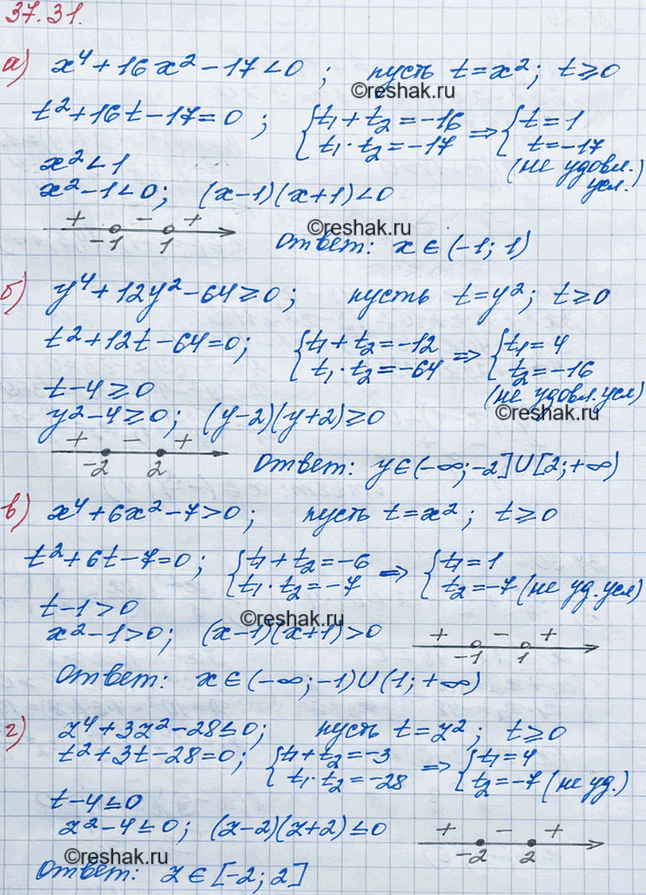 37.31.
а) x⁴+16x²-17<0; пусть t=x²; t≥0
©reshak.ru
t²+16t-17=0; {t₁+t₂=-16 t₁·t₂=-17 ⇒ {t=1 t=-17 (не удовл. усл.)
x²<1
x²-1<0; (x-1)(x+1)<0
+ - + -1 1
©reshak.ru
ответ: x∈(-1; 1)
б) y⁴+12y²-64≥0; пусть t=y²; t≥0
t²+12t-64=0; {t₁+t₂=-12 t₁·t₂=-64 ⇒ {t₁=4 t₂=-16 (не удовл. усл)
t-4≥0
©reshak.ru
y²-4≥0; (y-2)(y+2)≥0
+ - + -2 2
ответ: y∈(-∞;-2]∪[2;+∞)
в) x⁴+6x²-7>0; пусть t=x²; t≥0
t²+6t-7=0; {t₁+t₂=-6 t₁·t₂=-7 ⇒ {t₁=1 t₂=-7 (не уд. усл)
t-1>0
©reshak.ru
x²-1>0; (x-1)(x+1)>0
+ - + -1 1
ответ: x∈(-∞;-1)∪(1;+∞)
г) z⁴+3z²-28≤0; пусть t=z²; t≥0
t²+3t-28=0; {t₁+t₂=-3 t₁·t₂=-28 ⇒ {t₁=4 t₂=-7 (не уд.)
t-4≤0
z²-4≤0; (z-2)(z+2)≤0
+ - + -2 2
©reshak.ru
ответ: z∈[-2; 2]